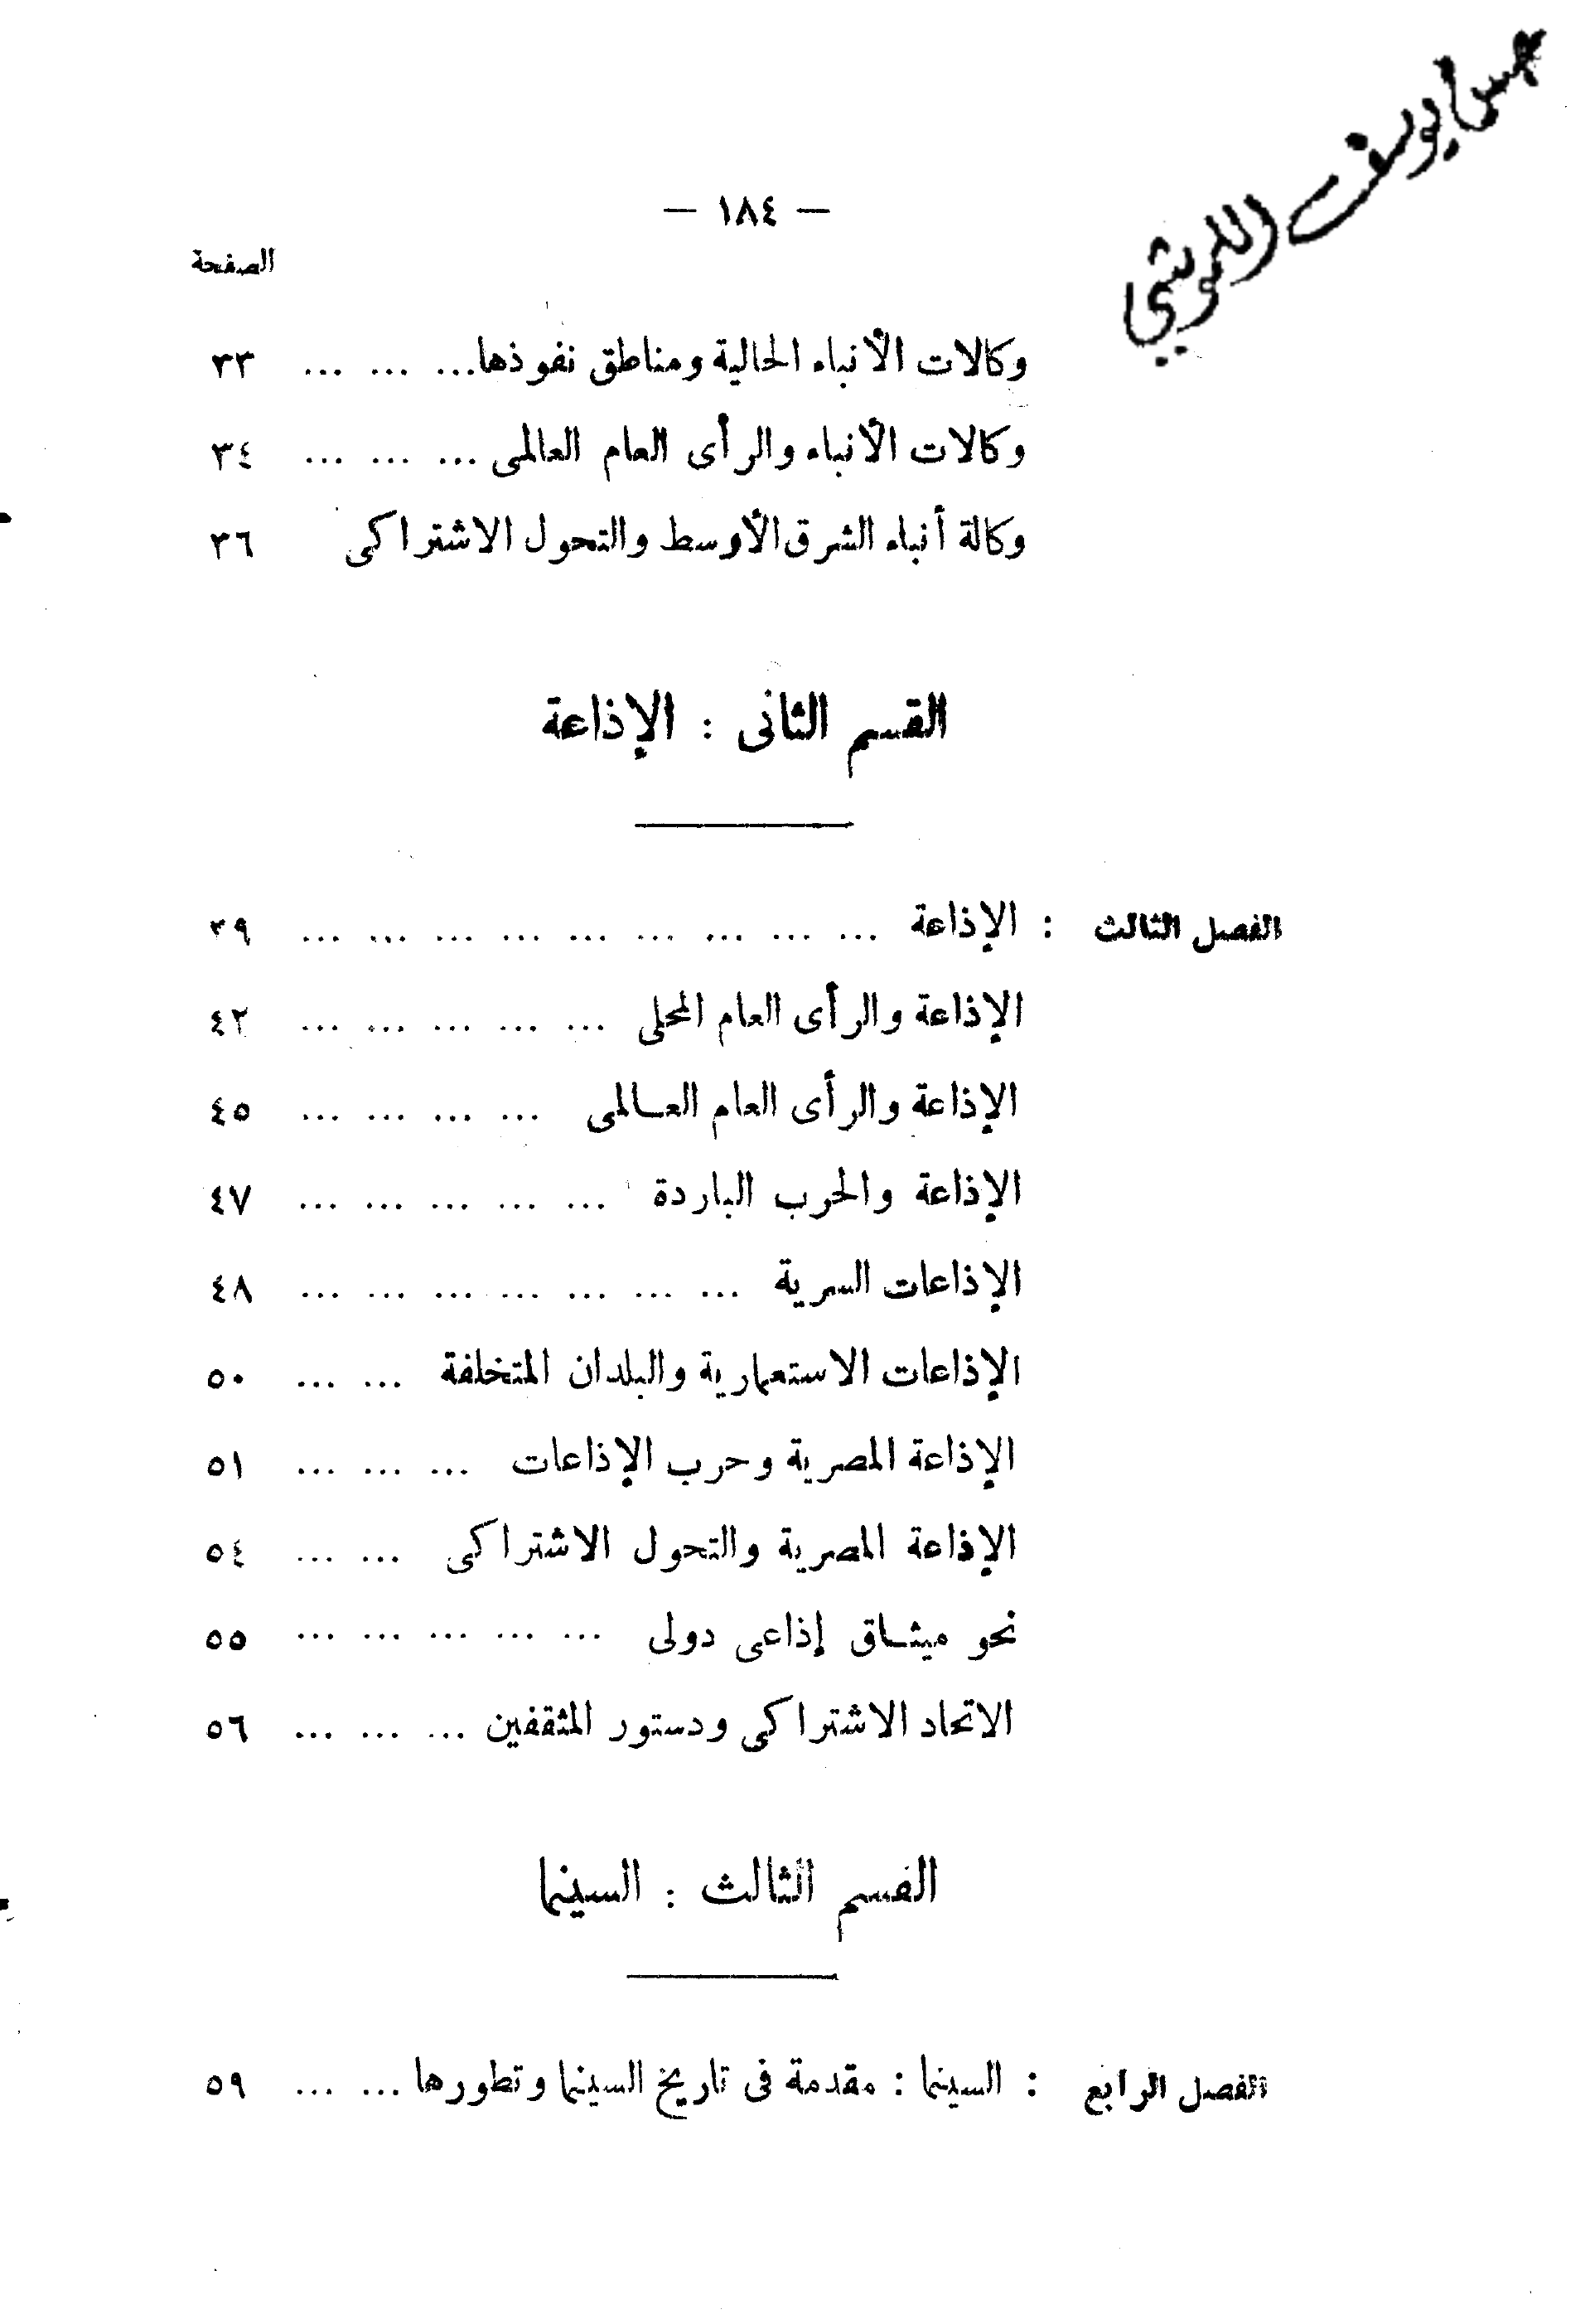 — ١٨٤ —
الصفحة
وكالات الأنباء الحالية ومناطق نفوذها... ... ... ٣٣
وكالات الأنباء والرأى العام العالمى ... ... ... ٣٤
وكالة أنباء الشرق الأوسط والتحول الاشتراكى ٣٦
القسم الثانى : الإذاعة
الفصل الثالث : الإذاعة ... ... ... ... ... ... ... ... ... ٣٩
الإذاعة والرأى العام المحلى ... ... ... ... ... ٤٢
الإذاعة والرأى العام العـالمى ... ... ... ... ٤٥
الإذاعة والحرب الباردة ... ... ... ... ... ٤٧
الإذاعات السرية ... ... ... ... ... ... ... ٤٨
الإذاعات الاستعمارية والبلدان المتخلفة ... ... ٥٠
الإذاعة المصرية وحرب الإذاعات ... ... ... ٥١
الإذاعة المصرية والتحول الاشتراكى ... ... ٥٤
نحو ميثـاق إذاعى دولى ... ... ... ... ... ٥٥
الاتحاد الاشتراكى ودستور المثقفين ... ... ... ٥٦
القسم الثالث : السينما
الفصل الرابع : السينما : مقدمة فى تاريخ السينما وتطورها ... ... ٥٩